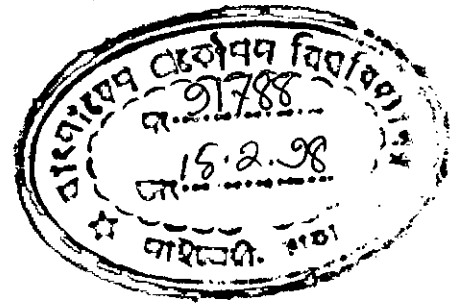 বাংলাদেশ প্রকৌশল বিশ্ববিদ্যালয়
নং 91788
তাং 15.2.98
লাইব্রেরী, ঢাকা